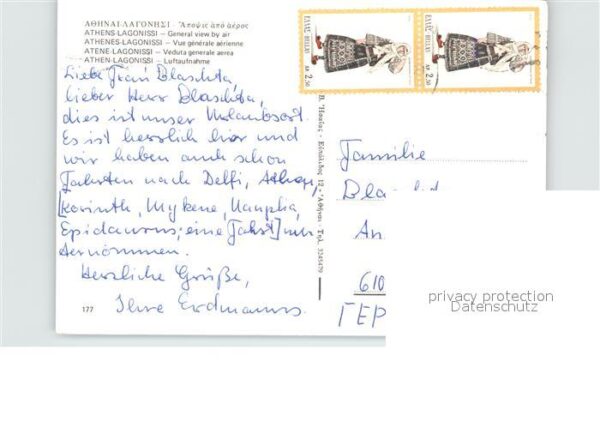 ΑΘΗΝΑΙ-ΛΑΓΟΝΗΣΙ - Ἄποψις ἀπό ἀέρος
ATHENS-LAGONISSI – General view by air
ATHENES-LAGONISSI – Vue générale aérienne
ATENE-LAGONISSI – Veduta generale aerea
ATHEN-LAGONISSI – Luftaufnahme
Liebe Frau Blaschta
lieber Herr Blaschta,
dies ist unser Urlaubsort.
Es ist herrlich hier und
wir haben auch schon
Fahrten nach Delfi, Athen,
[Korinth, Mykene, Nauplia,
Epidaurus; eine Fahrt] unternommen.
Herzliche Grüße,
Ihre Erdmanns.
177
Τηλ. 3245479
ΕΛΛΑΣ HELLAS
ΔΡ 2,50
ΕΛΛΑΣ HELLAS
ΔΡ 2,50
Familie
Bla
An
610
ΓΕΡ
privacy protection
Datenschutz